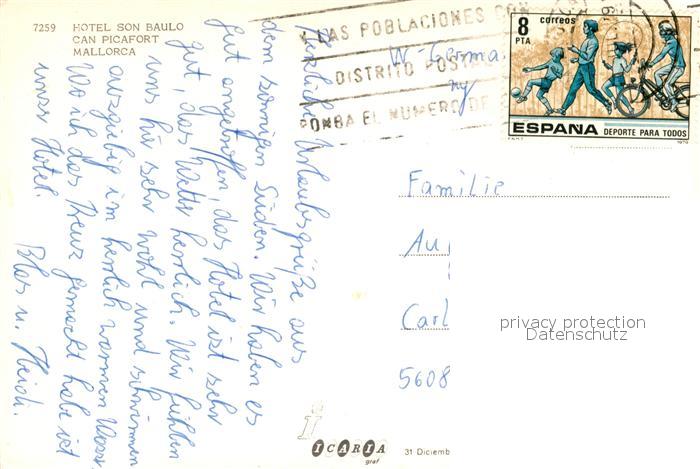 7259 HOTEL SON BAULO
CAN PICAFORT
MALLORCA
Herzliche Urlaubsgrüße aus
dem sonnigen Süden. Wir haben es
gut angetroffen, das Hotel ist sehr
gut, das Wetter herrlich. Wir fühlen
uns hier sehr wohl und schwimmen
ausgiebig im herrlich warmen Wasser.
Wo ich das Kreuz gemacht habe ist
unser Hotel.
u. Heidi.
LAS POBLACIONES CON
DISTRITO POSTAL
PONGA EL NUMERO DE
W-Germa
ny
8
PTA
correos
ESPAÑA DEPORTE PARA TODOS
F.N.M.T.
1979
Familie
Au
Carl
5608
privacy protection
Datenschutz
ICARIA
graf
31 Diciemb